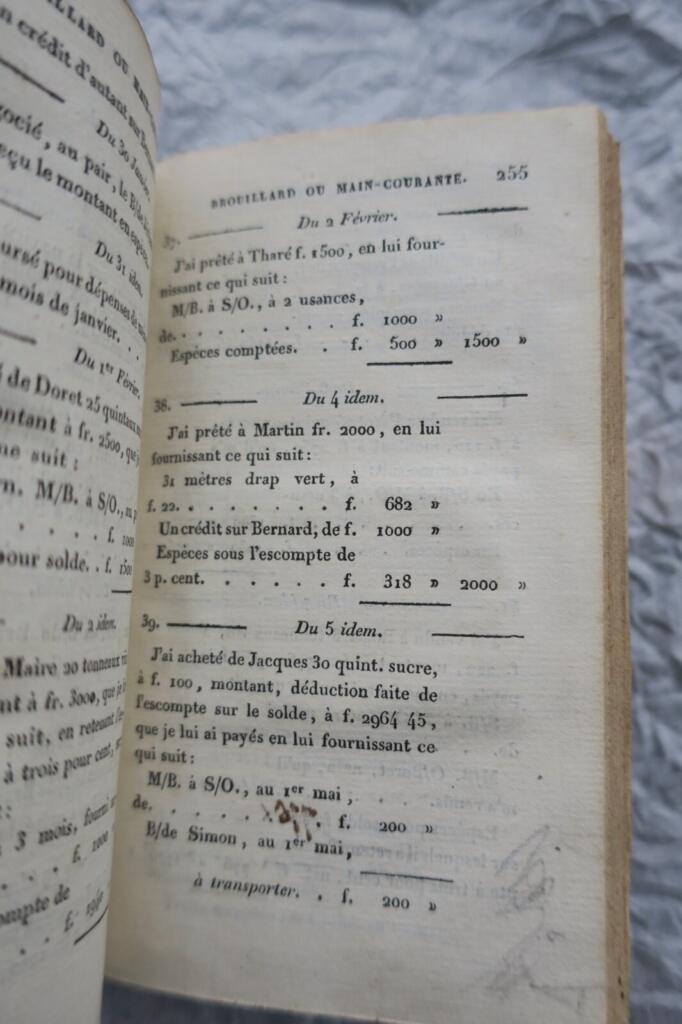 crédit d'autant sur
Du 30
au pair, le B/de
reçu le montant en
Du 31 idem.
pour dépenses de
mois de janvier. . .
Du 1er Février.
de Doret 25 quintaux
montant à fr. 2500, que
suit :
M/B. à S/O., au
. . . . f. 1000
pour solde. . f. 1500
Du 2 idem.
Maire 20 tonneaux
à fr. 3000, que je
suit, en retenant
à trois pour cent,
3 mois, fourni
. . . . f. 1000
de
. . . . f.
BROUILLARD OU MAIN-COURANTE. 255
37. Du 2 Février.
J'ai prêté à Tharé f. 1500, en lui four-
nissant ce qui suit :
M/B. à S/O., à 2 usances,
de. . . . . . . . . f. 1000 »
Espèces comptées. . f. 500 » 1500 »
38. Du 4 idem.
J'ai prêté à Martin fr. 2000, en lui
fournissant ce qui suit :
31 mètres drap vert, à
f. 22. . . . . . . . f. 682 »
Un crédit sur Bernard, de f. 1000 »
Espèces sous l'escompte de
3 p. cent. . . . . . f. 318 » 2000 »
39. Du 5 idem.
J'ai acheté de Jacques 30 quint. sucre,
à f. 100, montant, déduction faite de
l'escompte sur le solde, à f. 2964 45,
que je lui ai payés en lui fournissant ce
qui suit :
M/B. à S/O., au 1er mai,
de. . . . . . . . f. 200 »
B/de Simon, au 1er mai,
à transporter. . f. 200 »